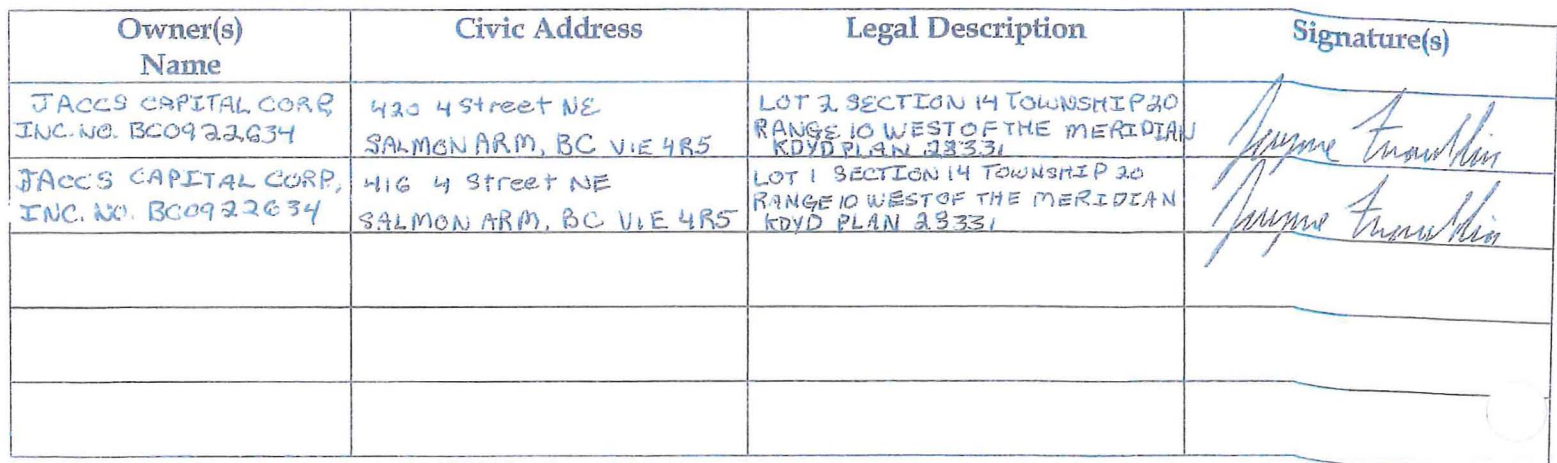 Owner(s)
Name
Civic Address
Legal Description
Signature(s)
JACCS CAPITAL CORP,
INC. NO. BC0922634
420 4 Street NE
SALMON ARM, BC V1E 4R5
LOT 2 SECTION 14 TOWNSHIP 20
RANGE 10 WEST OF THE MERIDIAN
KDYD PLAN 28331
JACC'S CAPITAL CORP,
INC. NO. BC0922634
416 4 Street NE
SALMON ARM, BC V1E 4R5
LOT 1 SECTION 14 TOWNSHIP 20
RANGE 10 WEST OF THE MERIDIAN
KDYD PLAN 28331